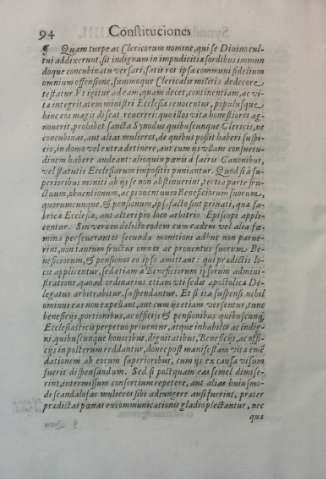 94 Constituciones
¶ Quam turpe ac Clericorum nomine, qui se Divino cul-
tui addixerunt, sit indignum in impudicitiæ sordibus immun
doque concubinatu versari, satis res ipsa communi fidelium
omnium offensione, summoque Clericalis militiæ dedecore
testatur. Vt igitur ad eam, quam decet, continentiam, ac vi-
tæ integritatem ministri Ecclesiæ revocentur, populusque
hinc eos magis discat revereri, quo illos vitæ honestiores ag-
noverit, prohibet sancta Synodus quibuscunque Clericis, ne
concubinas, aut alias mulieres, de quibus possit haberi suspi-
tio, in domo vel extra detinere, aut cum ijs vllam consuetu-
dinem habere audeant: alioquin pœnis à sacris Canonibus,
vel statutis Ecclesiarum impositis puniantur. Quod si à su-
perioribus moniti ab ijs se non abstinuerint, tertia parte fru-
ctuum, obventionum, ac proventuum Beneficiorum suorum,
quorumcunque, & pensionum, ipso facto sint privati, quæ fa-
bricæ Ecclesiæ, aut alteri pio loco arbitrio Episcopi appli-
centur. Sin verò in delicto eodem cum eadem vel alia fœ-
mina perseverantes secundæ monitioni adhuc non parue-
rint, non tantum fructus omnes ac proventus suorum Be-
neficiorum, & pensiones eo ipso amittant: qui prædictis lo-
cis applicentur, sed etiam à Beneficiorum ipsorum admini-
stratione, quoad ordinarius etiam vti sedis apostolicæ De-
legatus arbitrabitur, suspendantur. Et si ita suspensi nihil
ominus eas non expellant, aut cum ijs etiam versentur, tunc
beneficijs, portionibus, ac officijs & pensionibus quibuscunq;
Ecclesiasticis perpetuò priventur, atque inhabiles ac indig-
ni, quibuscunque honoribus, dignitatibus, Beneficijs, ac offi-
cijs in posterum reddantur, donec post manifestam vitæ emē-
dationem ab eorum superioribus, cum ijs ex causa visum
fuerit dispensandum. Sed si postquam eas semel dimise-
rint, intermissum consortium repetere, aut alias huiusmo-
di scandalosas mulieres sibi adiungere ausi fuerint, præter
prædictas pœnas excommunicationis gladio plectantur, nec
que